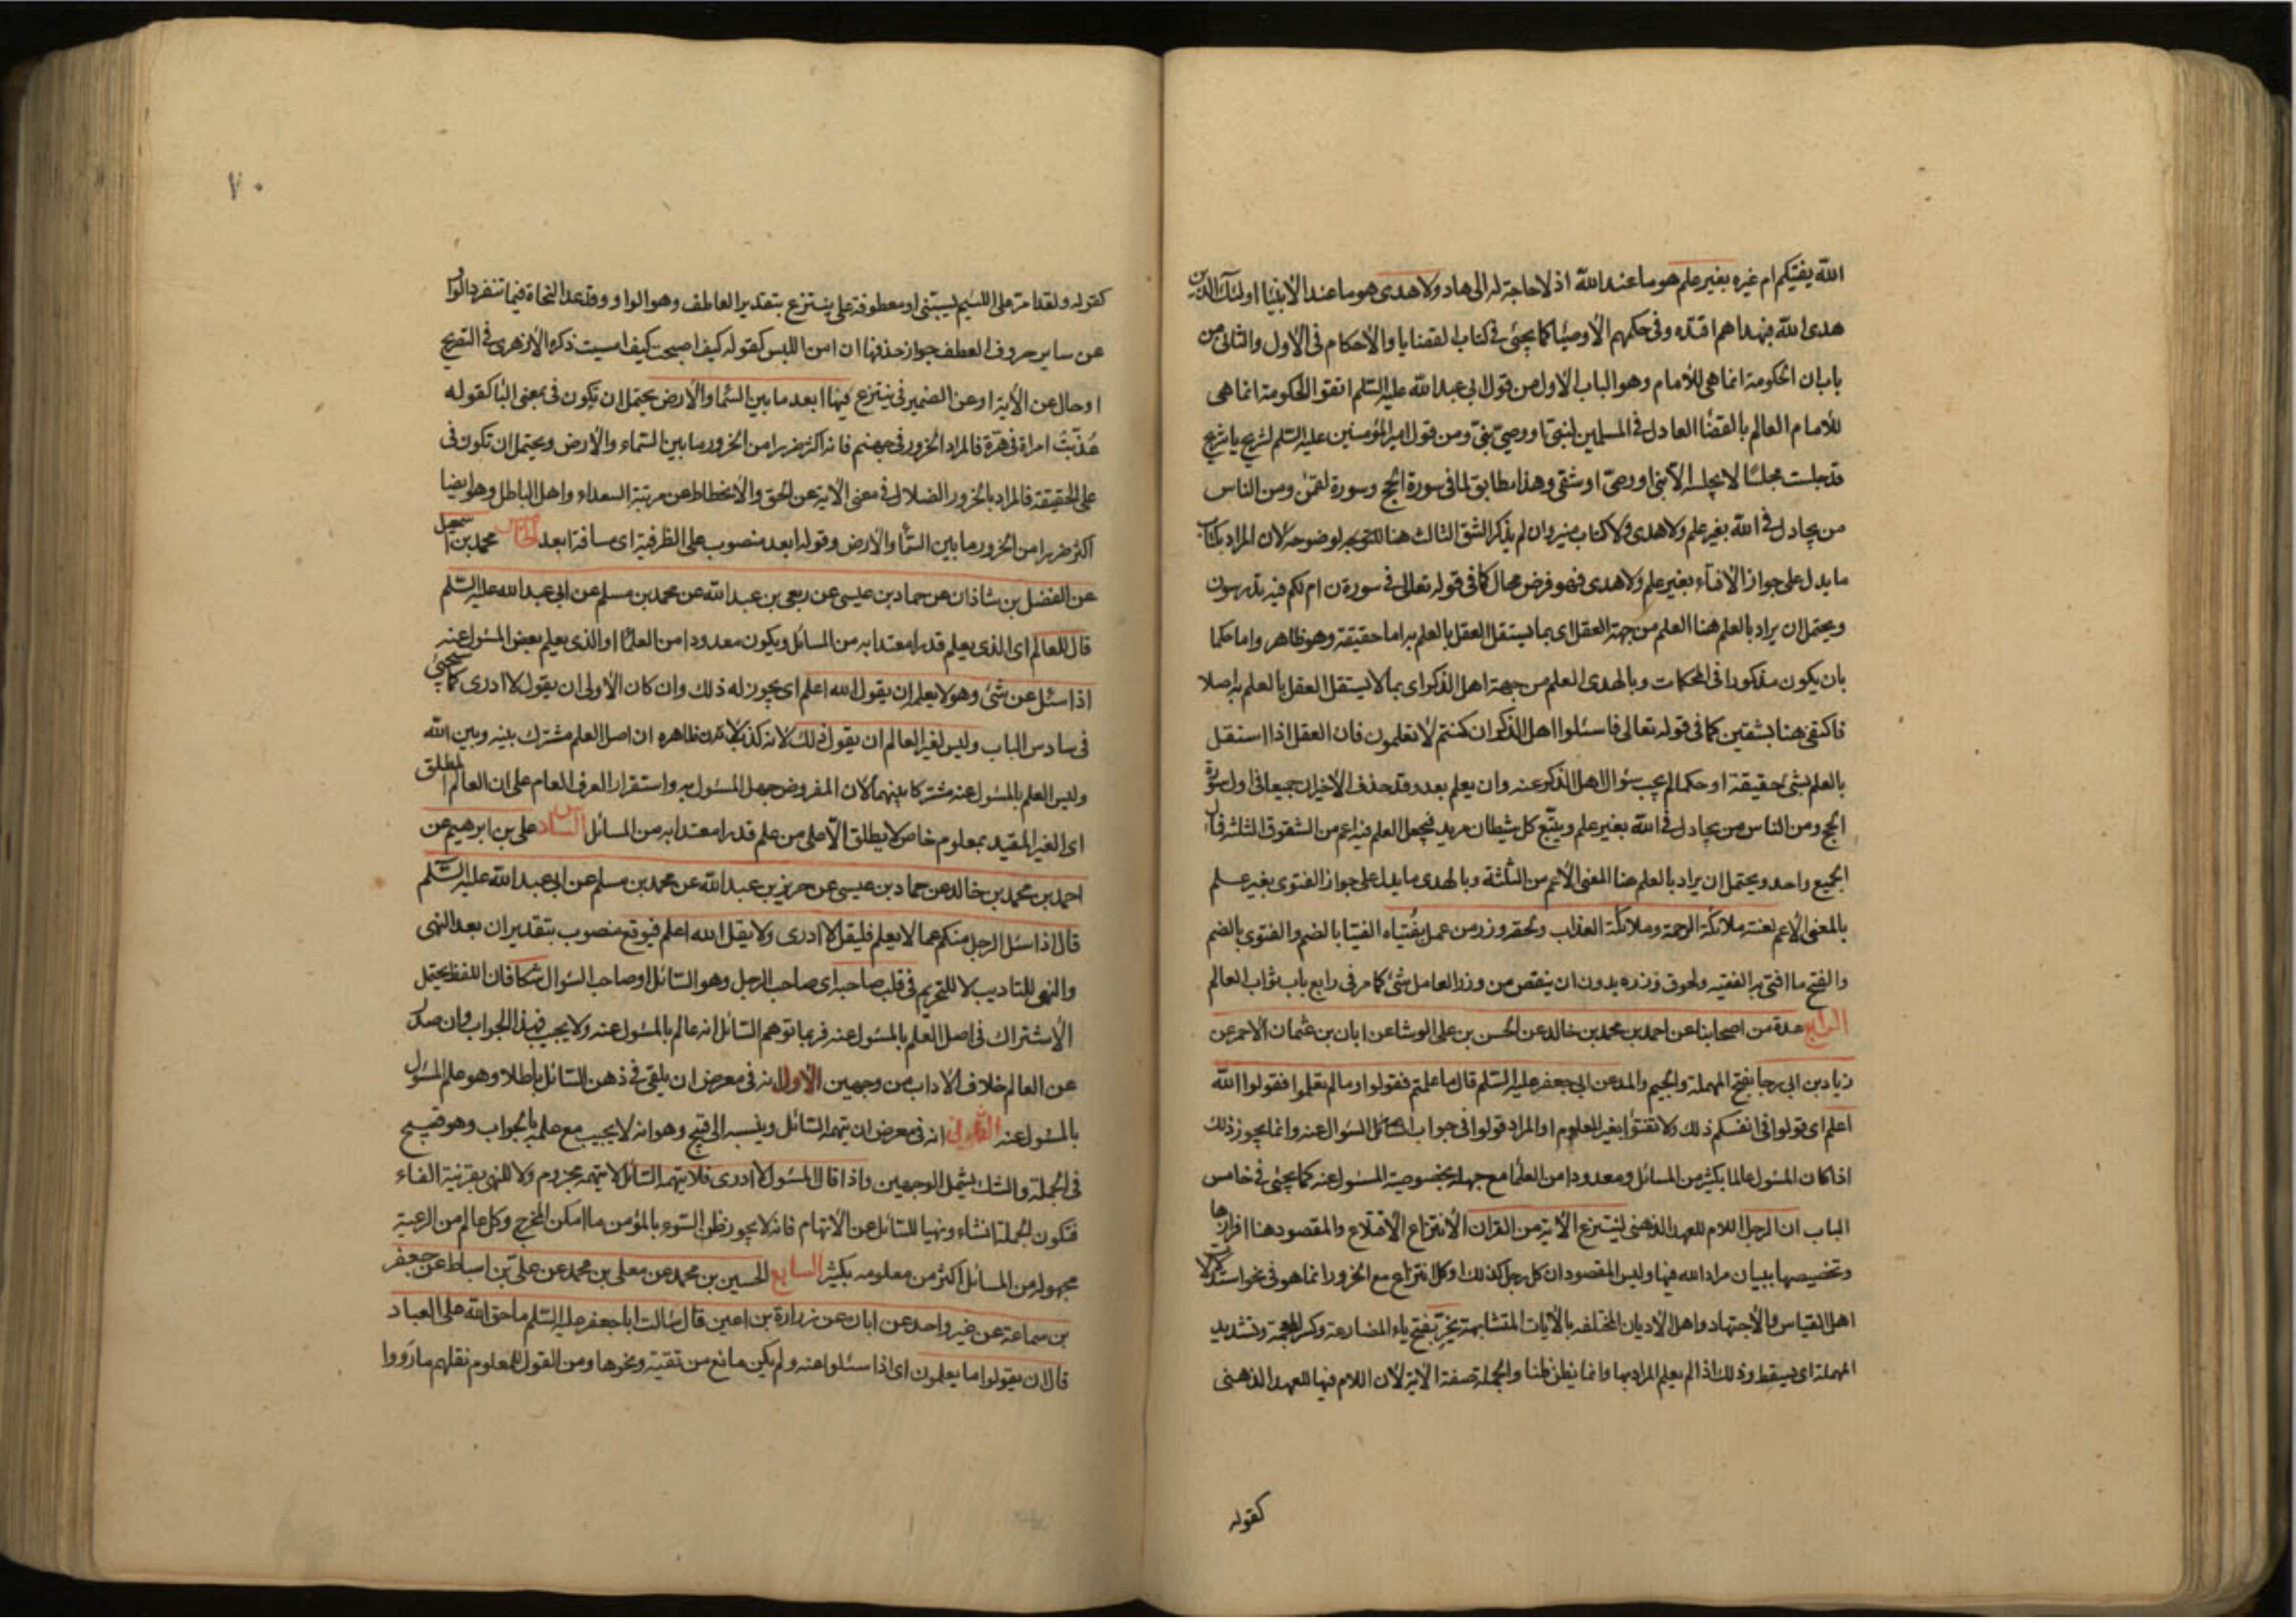 الله يفتيكم ام غيره بغير علم هو ما عند الله اذ لا حاجة له الى هاد ولا هدى هو ما عند الانبيا اولئك الذين
هدى الله فبهداهم اقتده وفى حكمهم الاوصيا كما يجئ فى كتاب القضايا والاحكام فى الاول والثانى من
باب ان الحكومة انما هى للامام وهو الباب الاول من قول ابى عبد الله عليه السّلم اتقوا الحكومة انما هى
للامام العالم بالقضا العادل فى المسلمين لنبىّ او وصىّ نبىّ ومن قول امير المؤمنين عليه السّلم لشريح يا شريح
قد جلست مجلسًا لا يجلسه الا نبىّ او وصىّ او شقى وهذا مطابق لما فى سورة الحج وسورة لقمن ومن الناس
من يجادل فى الله بغير علم ولا هدى ولا كتاب منير وان لم يذكر الشق الثالث هنا للتويجر لوضوحه لان المراد بكتاب
ما يدل على جواز الافتاء بغير علم ولا هدى فهو فرض محال كما فى قوله تعالى فى سورة ن ام لكم فيه تدرسون
ويحتمل ان يراد بالعلم هنا العلم من جهة العقل اى بما يستقل العقل بالعلم به اما حقيقة وهو ظاهر واما حكما
بان يكون مذكورا فى المحكمات وبالهدى العلم من جهة اهل الذكر اى بما لا يستقل العقل بالعلم به اصلا
فاكتفى هنا بشقين كما فى قوله تعالى فاسئلوا اهل الذكر ان كنتم لا تعلمون فان العقل اذا استقل
بالعلم بشئ حقيقة او حكما لم يجب سؤال اهل الذكر عنه وان يعلم بعد وقد حذف الاخيران جميعا فى اول سورة
الحج ومن الناس من يجادل فى الله بغير علم ويتّبع كل شيطان مريد فيجعل العلم فيه اعم من الشقوق الثلثة فمآل
الجميع واحد ويحتمل ان يراد بالعلم هنا المعنى الاعم من الثلثة وبالهدى ما يدل على جواز الفتوى بغير علم
بالمعنى الاعم لعنته ملائكة الرحمة وملائكة العذاب ولحقه وزر من عمل بفُتياه الفتيا بالضم والفتوى بالضم
والفتح ما افتى به الفقيه ولحوق وزره بدون ان ينقص من وزر العامل شئ كما مر فى رابع باب ثواب العالم
الرابع عدة من اصحابنا عن احمد بن محمد بن خالد عن الحسن بن على الوشا عن ابان بن عثمان الاحمر عن
زياد بن ابى رجا بفتح المهملة والجيم والمد عن ابى جعفر عليه السّلم قال ما علمتم فقولوا وما لم تعلموا فقولوا الله
اعلم اى قولوا فى انفسكم ذلك ولا تفتوا بغير المعلوم او المراد قولوا فى جواب السائل السؤال عنه وانما يجوز ذلك
اذا كان المسئول عالما بكثير من المسائل ومعدودا من العلما مع جهله بخصوصية المسئول عنه كما يجئ فى خامس
الباب ان الرجل اللام للعهد الذهنى لينتزع الآية من القران الانتزاع الاقتلاع والمقصود هنا افرازها
وتخصيصها ببيان مراد الله فيها وليس المقصود ان كل رجل كذلك او كل انتزاع مع الخرور انما هو فى نحو استدلال
اهل القياس والاجتهاد واهل الاديان المختلفة بالآيات المتشابهة يخرّ بفتح ياء المضارعة وكسر المعجمة وتشديد
المهملة اى يسقط وذلك اذا لم يعلم المراد بها وانما يظن ظنا والجملة صفة الآية لان اللام فيها للعهد الذهنى
كقوله
٧٠
كقوله ولقد امرّ على اللئيم يسبّنى او معطوفة على ينتزع بتقدير العاطف وهو الواو وقد عد النحاة فيما تنفرد الواو
عن ساير حروف العطف جواز حذفها ان امن اللبس كقوله كيف اصبحت كيف امسيت ذكره الازهرى فى التصريح
او حال عن الآية او عن الضمير فى ينتزع فيها ابعد ما بين السّما والارض يحتمل ان تكون فى بمعنى البا كقوله
عُذّبت امراة فى هرّة فالمراد الخرور فى جهنم فانه اكثر ضررا من الخرور ما بين السّماء والارض ويحتمل ان تكون فى
على الحقيقة فالمراد بالخرور الضلال فى معنى الاية عن الحق والانحطاط عن مرتبة السعداء واهل الباطل وهو ايضا
اكثر ضررا من الخرور ما بين السّما والارض وقوله ابعد منصوب على الظرفية اى مسافة ابعد الخامس محمد بن اسمعيل
عن الفضل بن شاذان عن حماد بن عيسى عن ربعى بن عبد الله عن محمد بن مسلم عن ابى عبد الله عليه السّلم
قال للعالم اى الذى يعلم قدرا معتدا به من المسائل ويكون معدودا من العلما او الذى يعلم بعض المسئول عنه
اذا سئل عن شئ وهو لا يعلمه ان يقول الله اعلم اى يجوز له ذلك وان كان الاولى ان يقول لا ادرى كما سيجئ
فى سادس الباب وليس لغير العالم ان يقول ذلك لانه كذب لان ظاهره ان اصل العلم مشترك بينه وبين الله
وليس العلم بالمسئول عنه مشتركا بينهما لان المفروض جهل المسئول به واستقرار العرف العام على ان العالم المطلق
اى الغير المقيد بمعلوم خاص لا يطلق الّا على من علم قدرا معتدا به من المسائل السادس على بن ابرهيم عن
احمد بن محمد بن خالد عن حماد بن عيسى عن حريز بن عبد الله عن محمد بن مسلم عن ابى عبد الله عليه السّلم
قال اذا سئل الرجل منكم عما لا يعلم فليقل لا ادرى ولا يقل الله اعلم فيوقع منصوب بتقدير ان بعد النهى
والنهى للتاديب لا للتحريم فى قلب صاحبه اى صاحب الرجل وهو السّائل او صاحب السّوال شكا فان اللفظ يحتمل
الاشتراك فى اصل العلم بالمسئول عنه فربما توهم السّائل انه عالم بالمسئول عنه ولا يجيب فهذا الجواب وان صدر
عن العالم خلاف الاداب من وجهين الاول انه فى معرض ان يلقى فى ذهن السّائل باطلا وهو علم المسئول
بالمسئول عنه الثانى انه فى معرض ان يتهمه السّائل وينسبه الى قبح وهو انه لا يجيب مع علمه بالجواب وهو قبيح
فى الجملة والشك يشمل الوجهين واذا قال المسئول لا ادرى فلا يتهمه السّائل لا يتهمه مجزوم ولا للنهى بقرينة الفاء
فتكون الجملة انشاء ونهيا للسّائل عن الاتهام فانه لا يجوز ظن السّوء بالمؤمن ما امكن المخرج وكل عالم من الرعية
مجهوله من المسائل اكثر من معلومه بكثير السابع الحسين بن محمد عن معلى بن محمد عن علىّ بن اسباط عن جعفر
بن سماعة عن غير واحد عن ابان عن زرارة بن اعين قال سالت ابا جعفر عليه السّلم ما حق الله على العباد
قال ان يقولوا ما يعلمون اى اذا سئلوا عنه ولم يكن مانع من تقية ونحوها ومن القول المعلوم نقلهم ما رووا